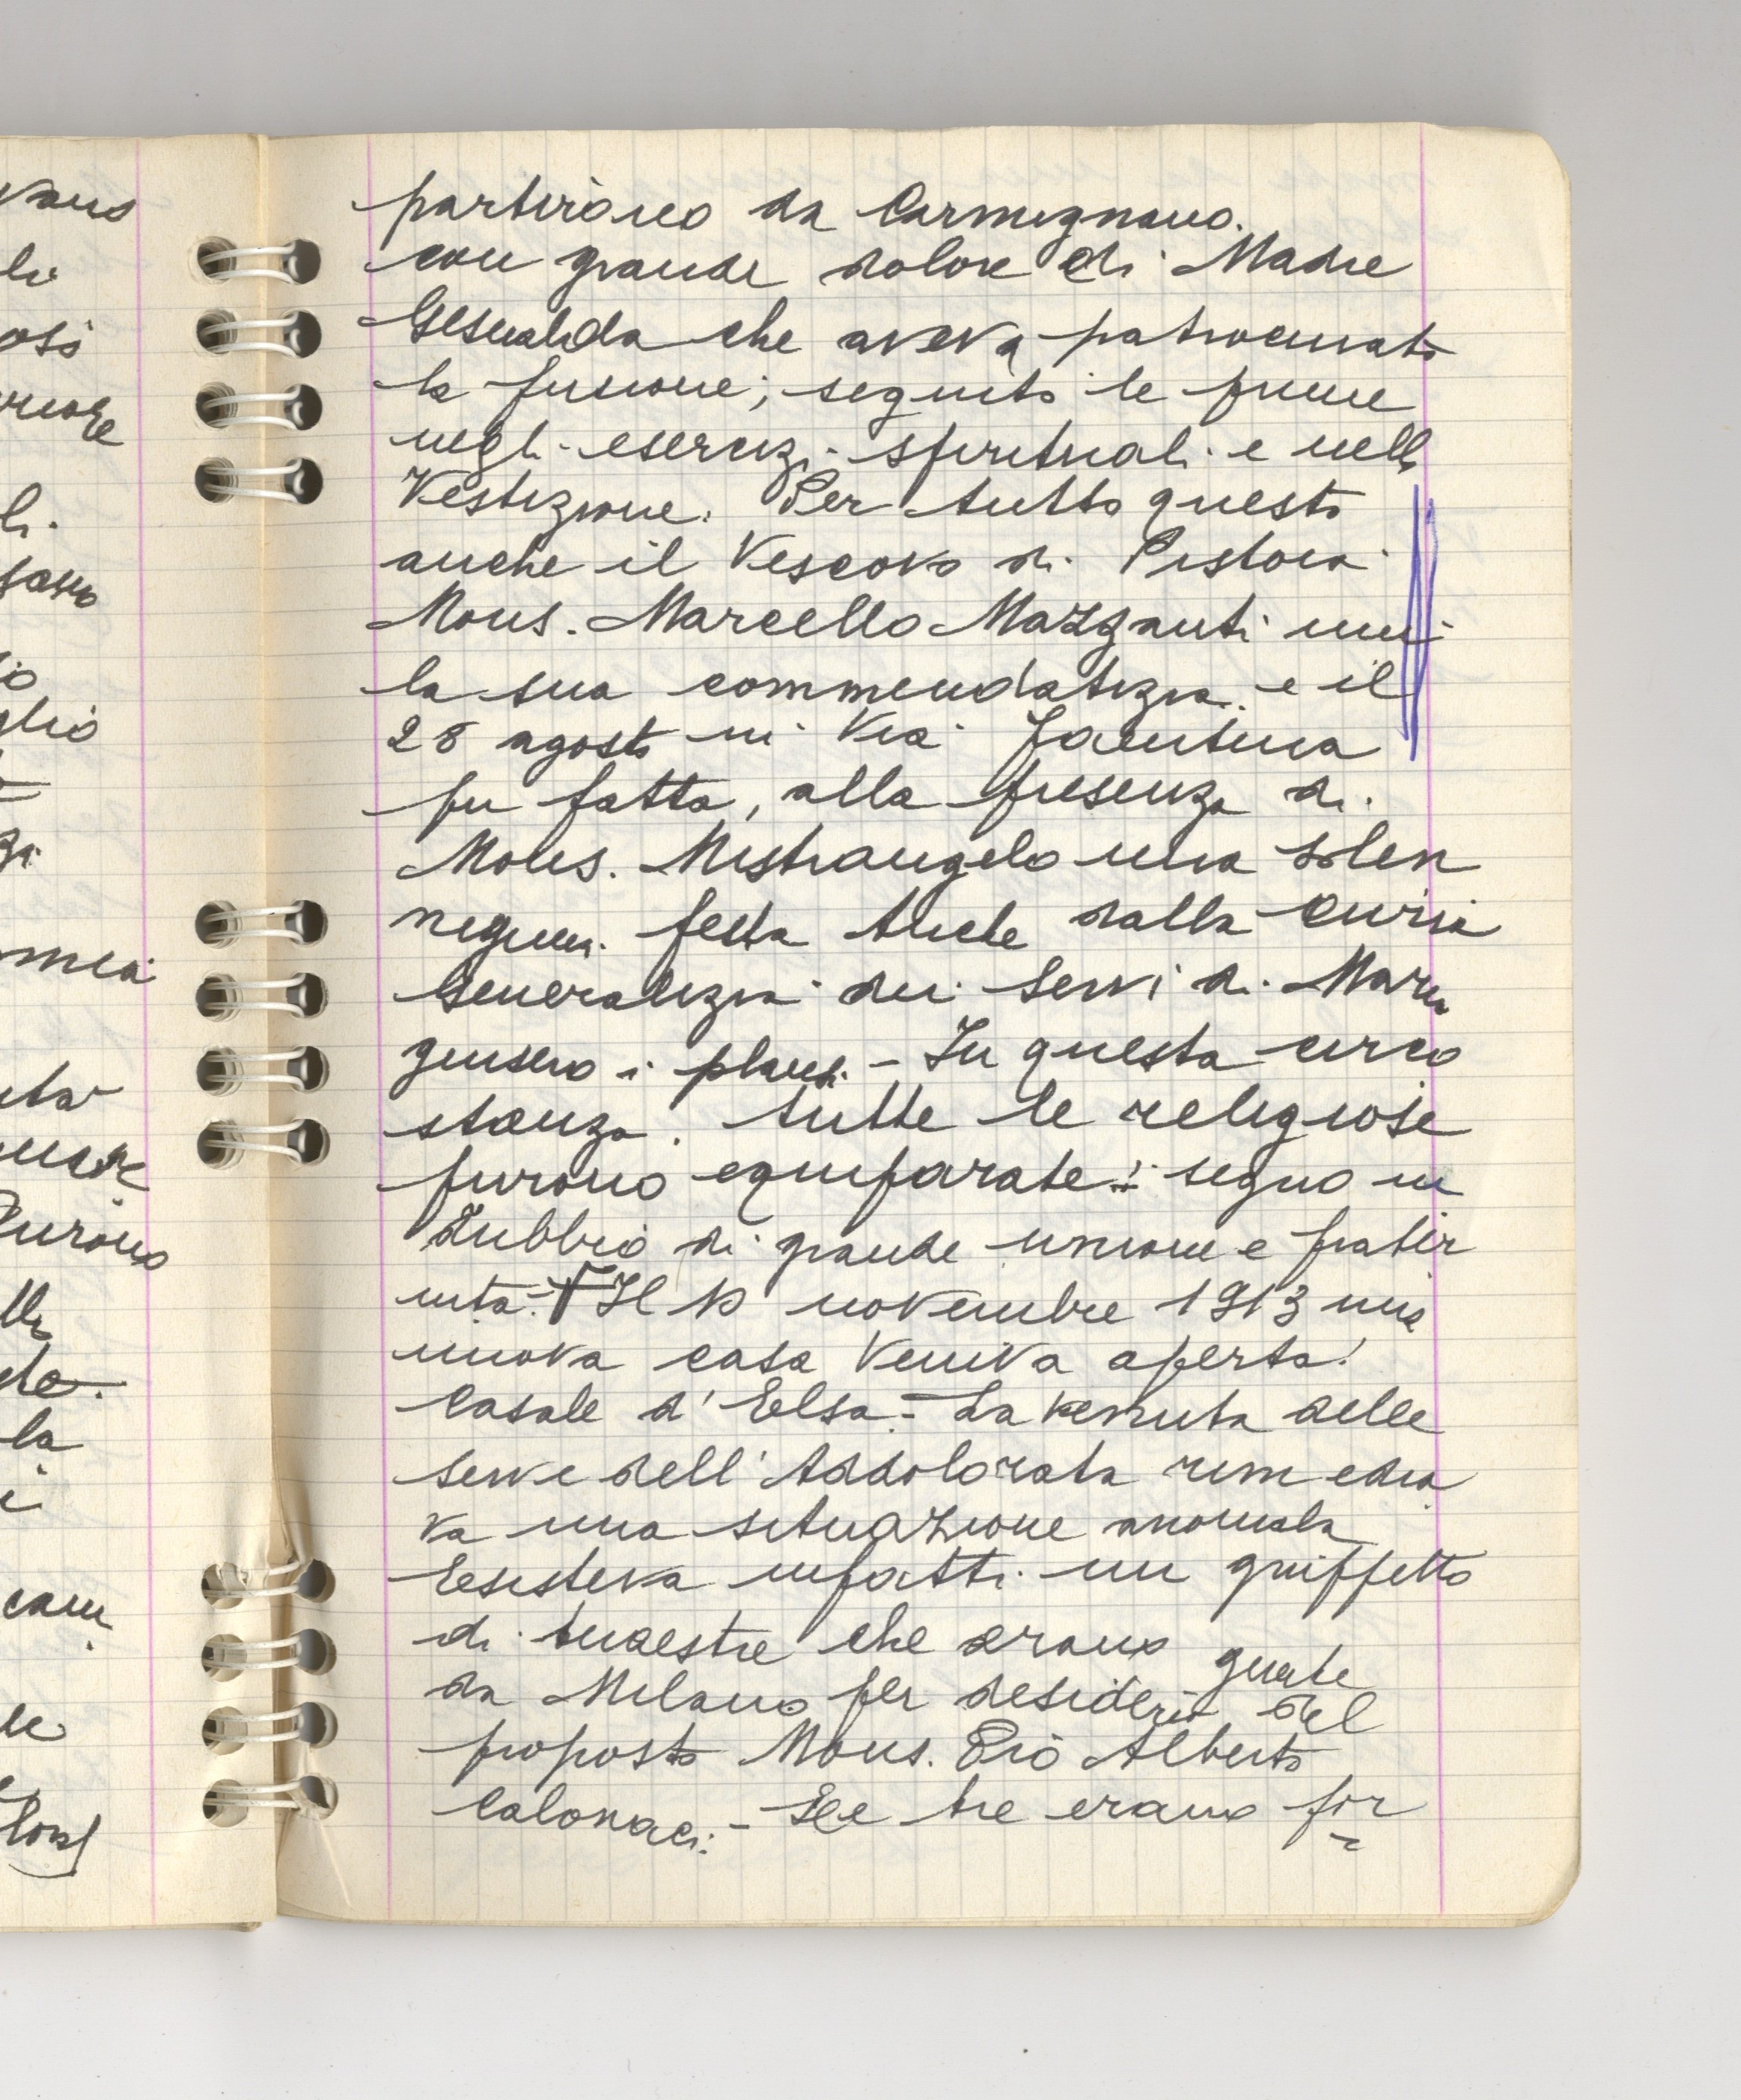 partirono da Carmignano.
con grande dolore di Madre
Gesualda che aveva patrocinato
la fusione; seguito le prime
negli esercizi spirituali e nella
Vestizione. Per tutto questo
anche il Vescovo di Pistoia
Mons. Marcello Mazzanti unì
la sua commendatizia e il
28 agosto in Via Faentina
fu fatta, alla presenza di
Mons. Mistrangelo una solen
festa Anche dalla Curia
Generalizia dei Servi di Maria
giunsero i plausi - In questa circo
stanza. tutte le religiose
furono equiparate: segno in
dubbio di grande unione e frater
nità. Il novembre 1913 una
nuova casa veniva aperta:
Casale d'Elsa. - La venuta delle
Serve dell'Addolorata rimedia
va una situazione anomala
Esisteva infatti un gruppetto
di maestre che erano giunte
da Milano per desiderio del
proposto Mons. Pio Alberto
Calonaci. - Le tre erano for
vano
li
osi
li.
io
glio
mia
uta
furono
lla
la
i